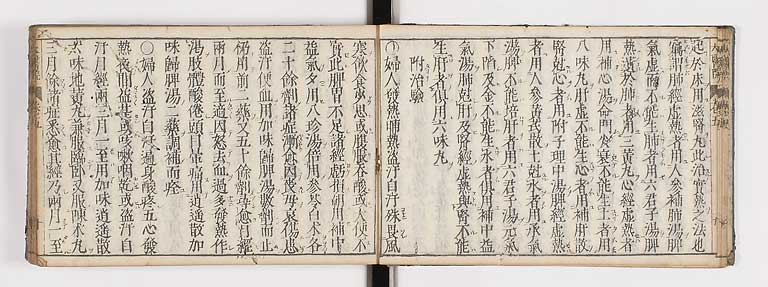 起於床用滋腎丸此治實熱之法也
竊謂肺經虛熱者用人參補肺湯脾
氣虛而不能生肺者用六君子湯脾
熱遺於肺者用三黃丸心經虛熱者
用補心湯命門火衰不能生土者用
八味丸肝虛不能生心者用補肝散
腎尅心者用附子理中湯脾經虛熱
者用人參黃芪散土尅水者用承氣
湯脾不能培肝者用六君子湯元氣
下陷及金不能生水者俱用補中益
氣湯肺尅肝及腎經虛熱與腎不能
生肝者俱用六味丸
附治驗
○婦人發熱晡熱盜汗自汗殊畏風
寒飲食少思或腹脹吞酸或大便不
實此脾胃不足諸經虧損朝用補中
益氣夕用八珍湯倍用參苓白朮各
二十餘劑諸症漸愈因喪母哀傷患
盜汗便血用加味歸脾湯數劑而止
仍用前二藥又五十餘劑尋愈月經
兩月而至適因怒去血過多發熱作
渴肢體酸倦頭目暈痛用逍遙散加
味歸脾湯二藥調補而痊
○婦人盜汗自汗遍身酸疼五心發
熱夜間益甚或咳嗽咽乾或盜汗自
汗月經兩三月一至用加味逍遙散
六味地黃丸兼服臨卧又服陳朮丸
三月餘諸症悉愈其經乃兩月一至